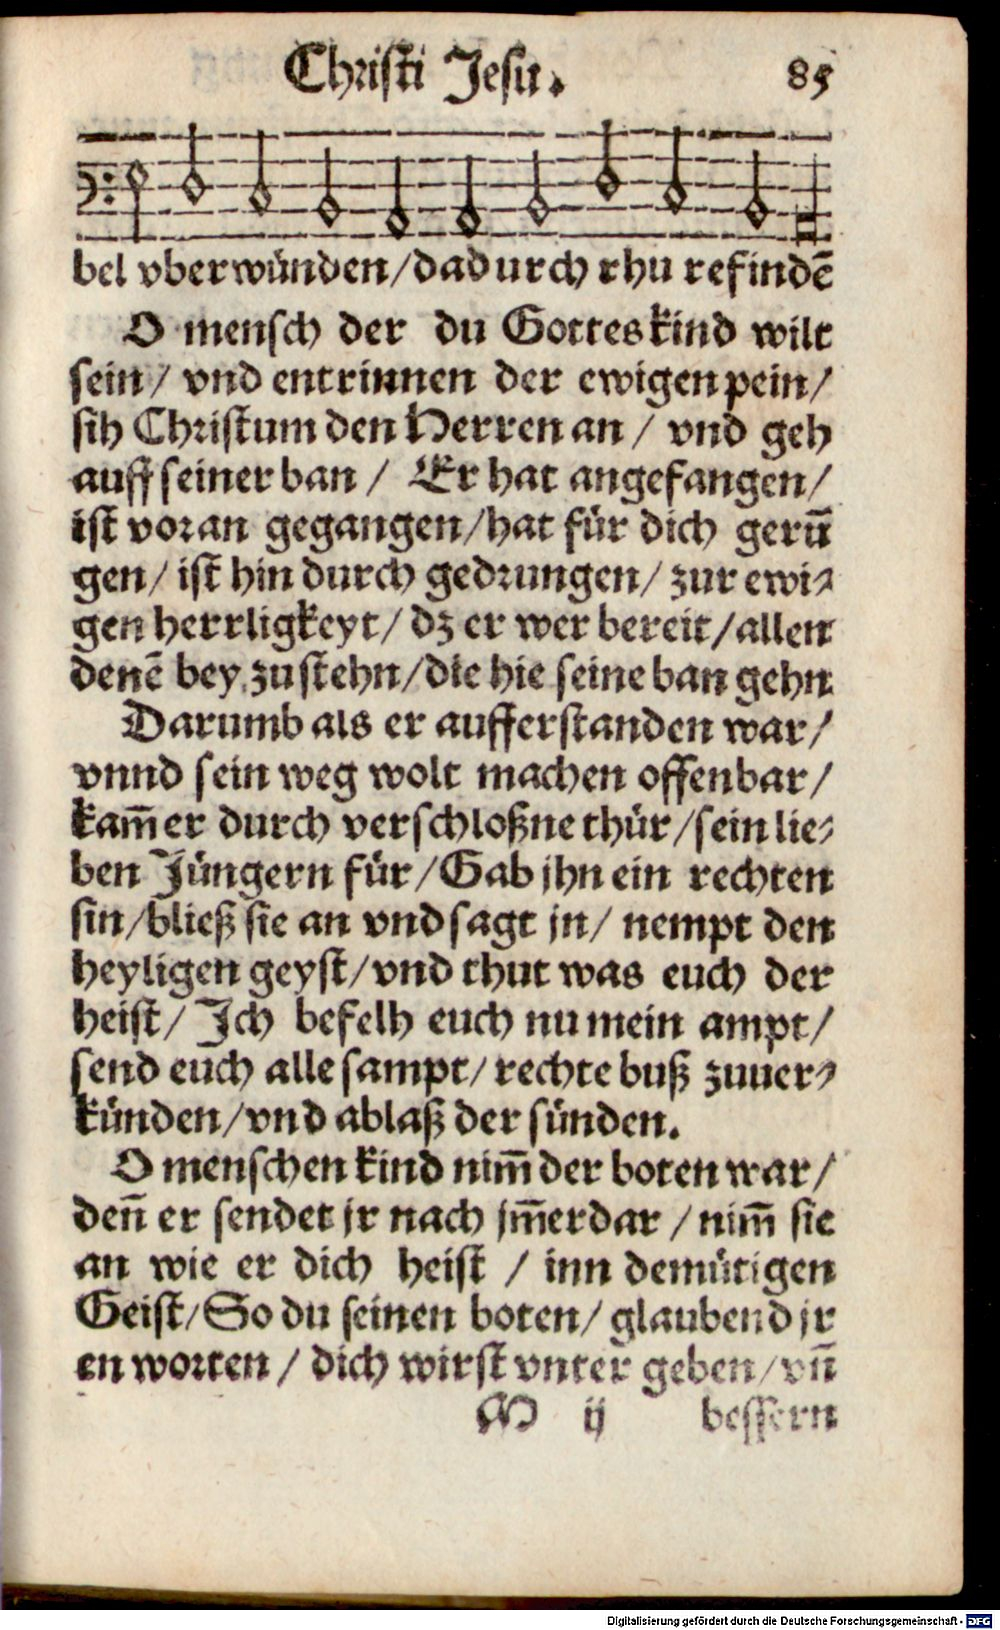 Christi Jesu. 85
bel vberwünden/dadurch rhu refindē
O mensch der du Gottes kind wilt
sein/ vnd entrinnen der ewigen pein/
sih Christum den Herren an/ vnd geh
auff seiner ban/ Er hat angefangen/
ist voran gegangen/hat für dich gerun̄
gen/ ist hin durch gedrungen/ zur ewi⸗
gen herrligkeyt/ dz er wer bereit/allen
denē bey zu stehn/die hie seine ban gehn
Darumb als er aufferstanden war/
vnnd sein weg wolt machen offenbar/
kam̄ er durch verschloßne thür/sein lie⸗
ben Jüngern für/Gab jhn ein rechten
sin/bließ sie an vnd sagt jn/ nempt den
heyligen geyst/vnd thut was euch der
heist/ Jch befelh euch nu mein ampt/
send euch alle sampt/rechte buß zuuer⸗
künden/vnd ablaß der sünden.
O menschen kind nim̄ der boten war/
den̄ er sendet jr nach jm̄erdar/nim̄ sie
an wie er dich heist / inn demütigen
Geist/So du seinen boten/ glaubend jr
en worten/ dich wirst vnter geben/vn̄
M ij bessern
Digitalisierung gefördert durch die Deutsche Forschungsgemeinschaft - DFG